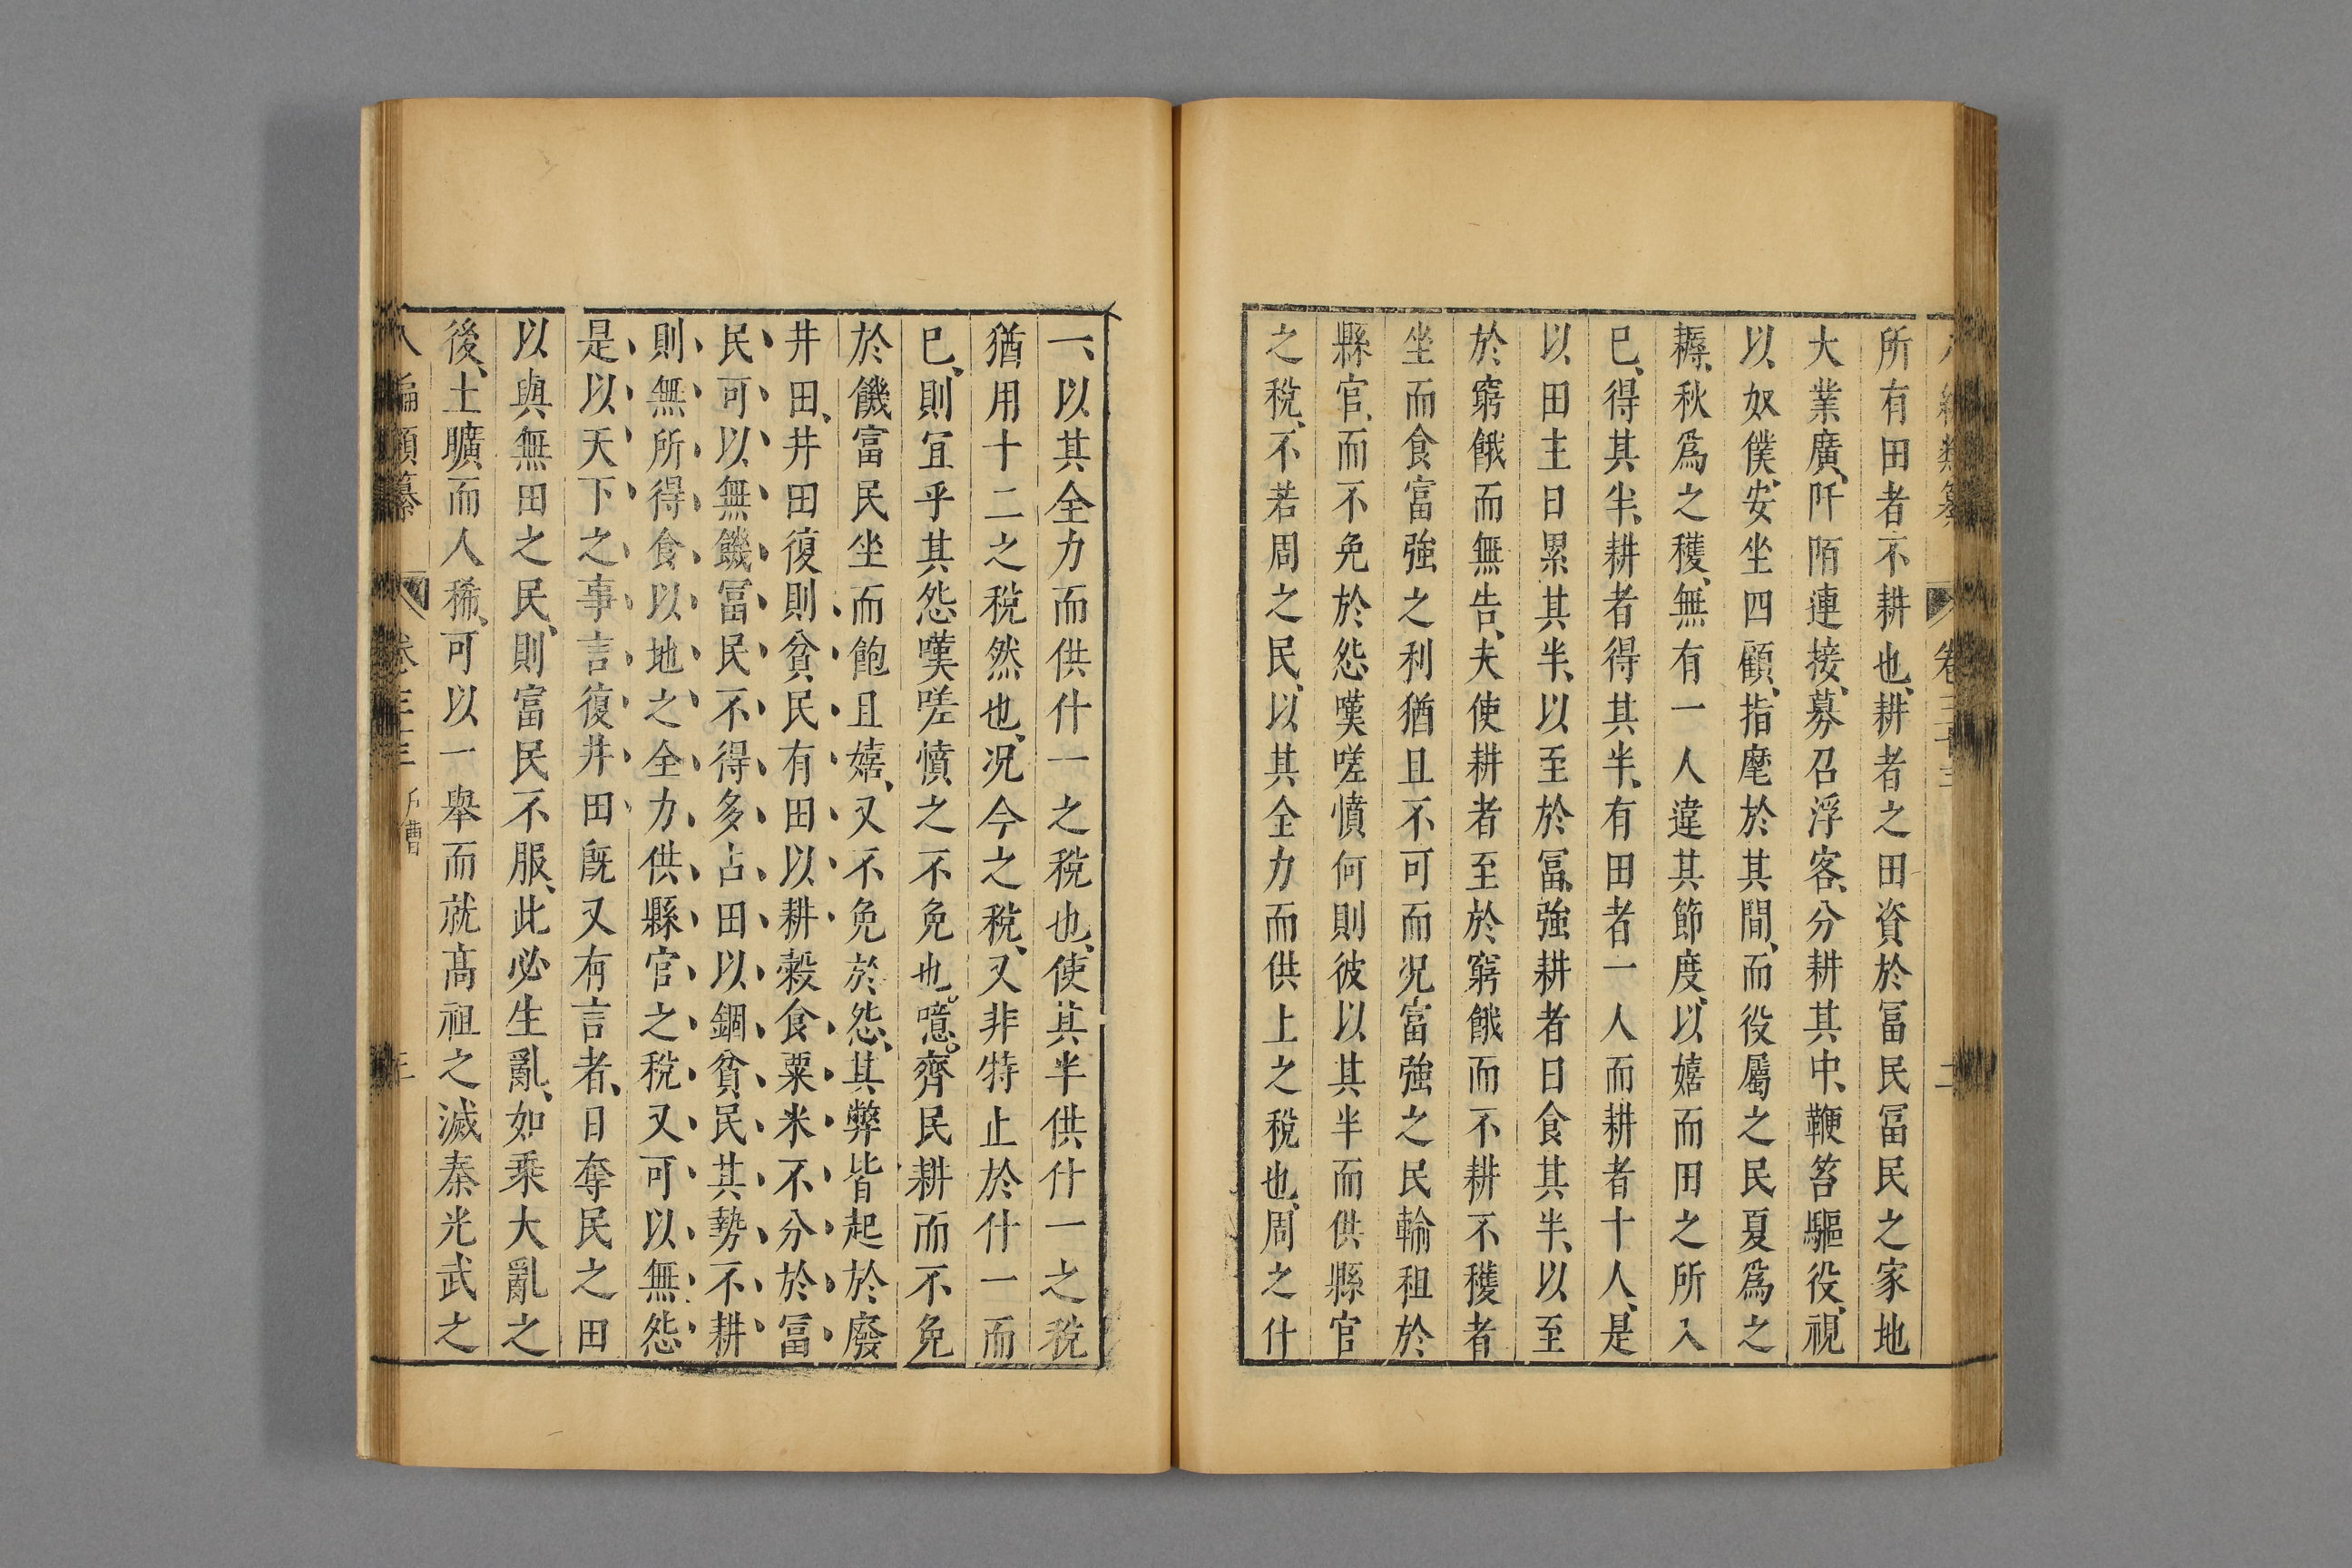 所有田者不耕也、耕者之田資於冨民冨民之家地
大業廣、阡陌連接、募召浮客、分耕其中、鞭笞驅役、視
以奴僕、安坐四顧、指麾於其間、而役屬之民夏爲之
耨、秋爲之穫、無有一人違其節度、以嬉而田之所入
已、得其半、耕者得其半、有田者一人而耕者十人、是
以田主日累其半、以至於冨、強耕者日食其半、以至
於窮餓而無告、夫使耕者至於窮餓而不耕不穫者
坐而食富強之利猶且不可而况富強之民輸租於
縣官、而不免於怨嘆嗟憤何則彼以其半而供縣官
之稅、不若周之民、以其全力而供上之稅也、周之什
一、以其全力而供什一之稅也、使其半供什一之稅
猶用十二之稅然也、况今之稅、又非特止於什一而
已、則宜乎其怨嘆嗟憤之不免也。噫。齊民耕而不免
於饑富民坐而飽且嬉、又不免於怨、其弊皆起於廢
井田、井田復則貧民有田以耕穀食粟米不分於冨
民可以無饑冨民不得多占田以錮貧民其勢不耕
則無所得食以地之全力供縣官之稅又可以無怨
是以天下之事言復井田既又有言者、日奪民之田
以與無田之民、則富民不服、此必生亂、如乘大亂之
後、土曠而人稀、可以一舉而就髙祖之滅秦光武之